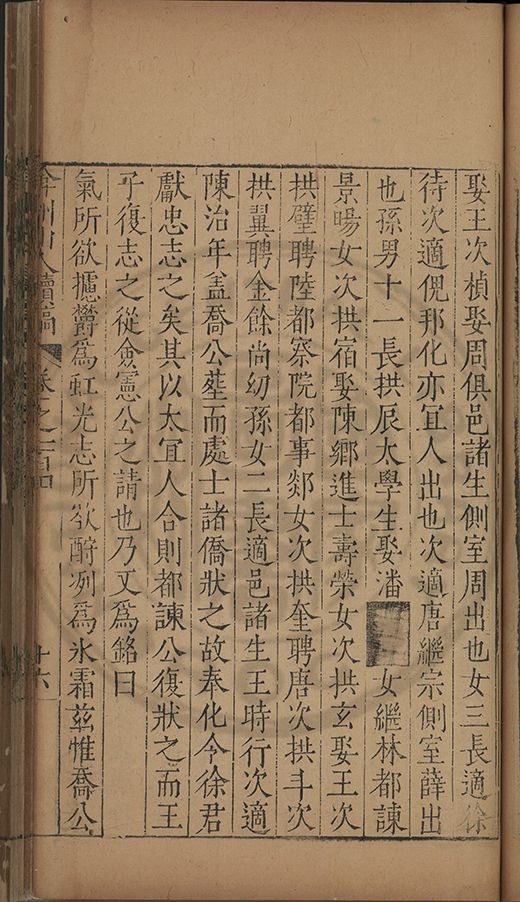 娶王次楨娶周俱邑諸生側室周出也女三長適徐
待次適倪邦化亦宜人出也次適唐繼宗側室薛出
也孫男十一長拱辰太學生娶潘女繼林都諫
景暘女次拱宿娶陳鄉進士壽榮女次拱玄娶王次
拱璧聘陸都察院都事郯女次拱奎聘唐次拱斗次
拱翼聘金餘尚幼孫女二長適邑諸生王時行次適
陳治年盖喬公塟而處士諸僑狀之故奉化令徐君
獻忠志之矣其以太宜人合則都諫公復狀之而王
子復志之從僉憲公之請也乃又為銘曰
氣所欲攄鬱為虹光志所欲酹冽為氷霜茲惟喬公
弇州山人續稿 卷之一百 十六